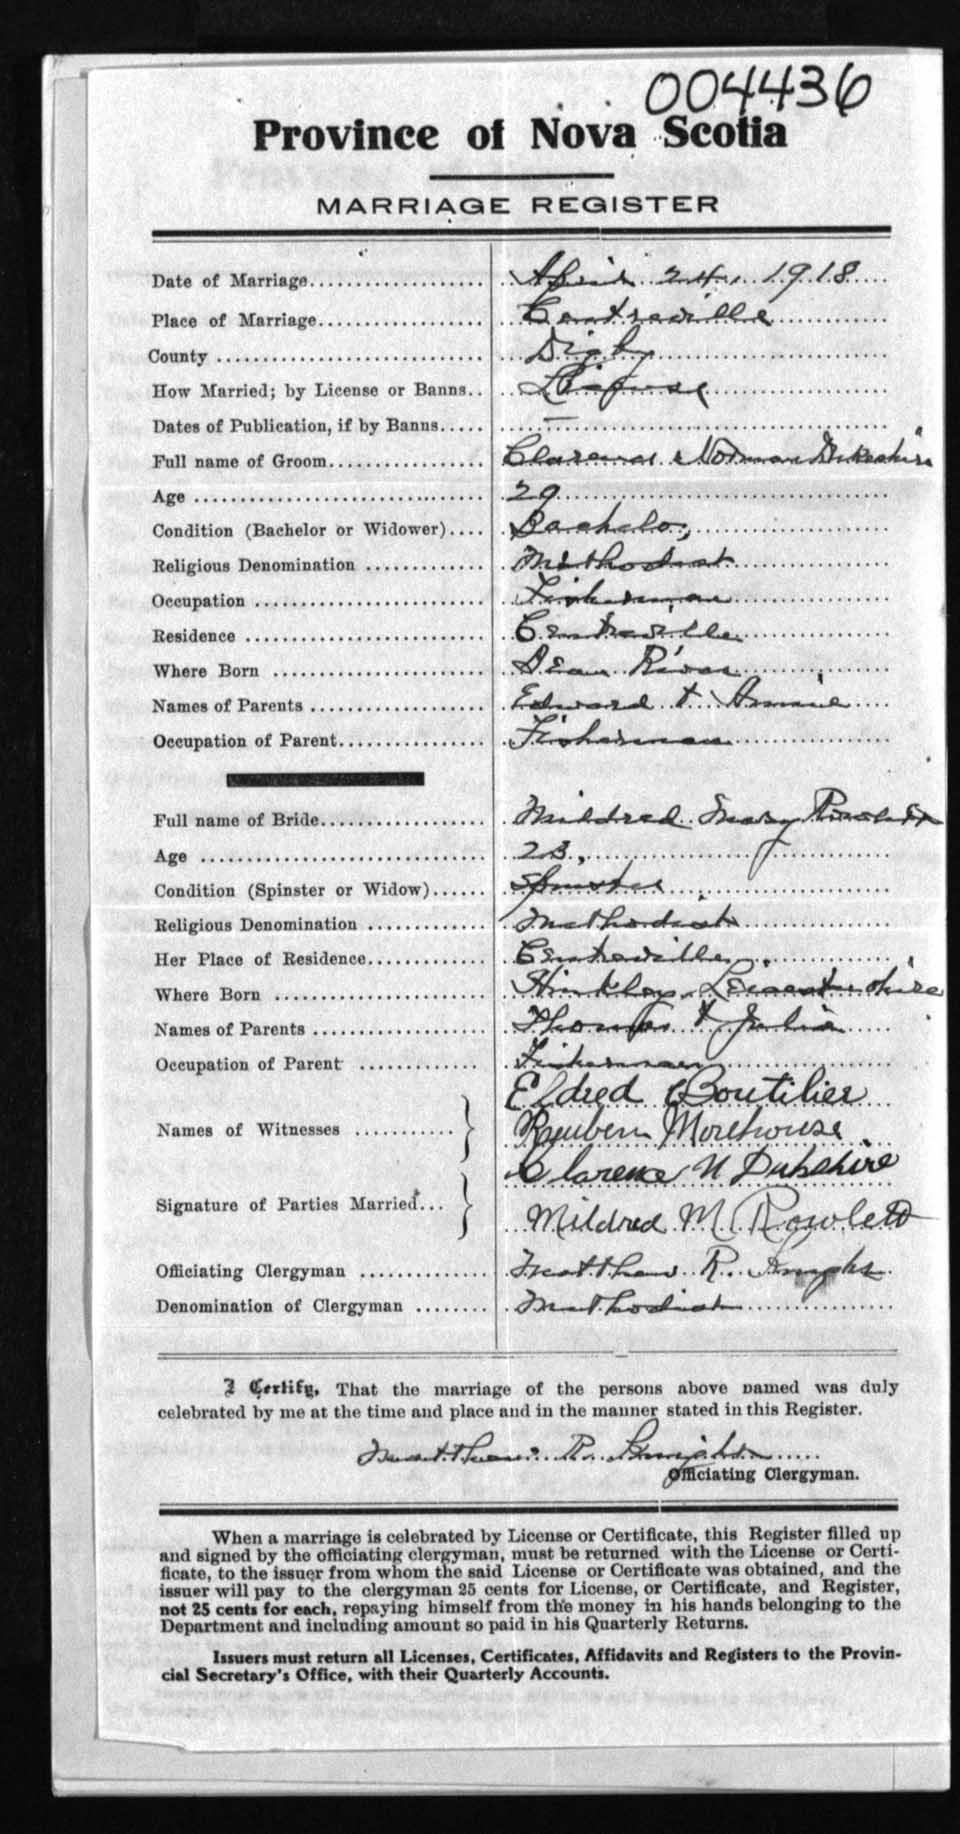 004436
Province of Nova Scotia
MARRIAGE REGISTER
Date of Marriage April 24, 1918
Place of Marriage Centreville
County Digby
How Married; by License or Banns License
Dates of Publication, if by Banns —
Full name of Groom Clarence Norman Dukeshire
Age 29
Condition (Bachelor or Widower) Bachelor
Religious Denomination Methodist
Occupation Fisherman
Residence Centreville
Where Born Bear River
Names of Parents Edward & Annie
Occupation of Parent Fisherman
Full name of Bride Mildred Mary Rowlett
Age 23,
Condition (Spinster or Widow) Spinster
Religious Denomination Methodist
Her Place of Residence Centreville
Where Born Hinkley, Leicestershire
Names of Parents Thomas & Julia
Occupation of Parent Fisherman
Eldred Boutilier
Names of Witnesses
Reuben Morehouse
Clarence N Dukshire
Signature of Parties Married
Mildred M. Rowlett
Officiating Clergyman Matthew R. Knight
Denomination of Clergyman Methodist
I Certify, That the marriage of the persons above named was duly
celebrated by me at the time and place and in the manner stated in this Register.
Matthew R. Knight
Officiating Clergyman.
When a marriage is celebrated by License or Certificate, this Register filled up
and signed by the officiating clergyman, must be returned with the License or Certi-
ficate, to the issuer from whom the said License or Certificate was obtained, and the
issuer will pay to the clergyman 25 cents for License, or Certificate, and Register,
not 25 cents for each, repaying himself from the money in his hands belonging to the
Department and including amount so paid in his Quarterly Returns.
Issuers must return all Licenses, Certificates, Affidavits and Registers to the Provin-
cial Secretary's Office, with their Quarterly Accounts.